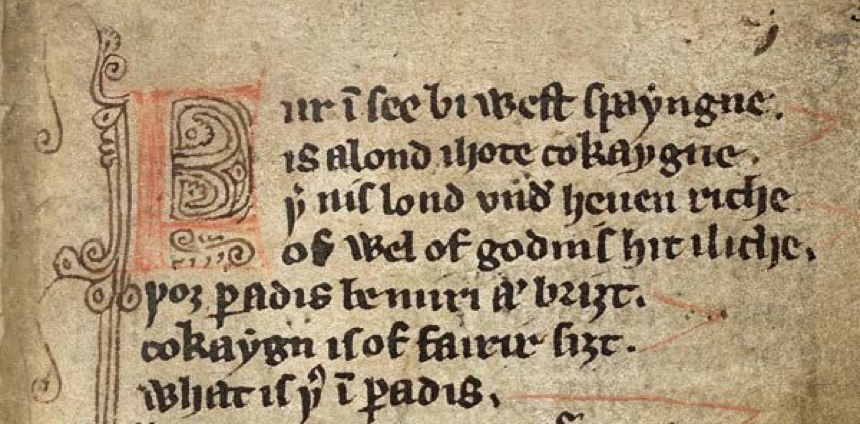 Fur ī see bi west spaẏngne.
is a lond ihote cokaygne.
þ͛ nis lond vnd͛ heuen riche
of wel of godnis hit iliche.
þoȝ ꝑadis be miri ⁊ briȝt.
cokaẏgn is of fairir siȝt.
what is þ͛ ī ꝑadis.